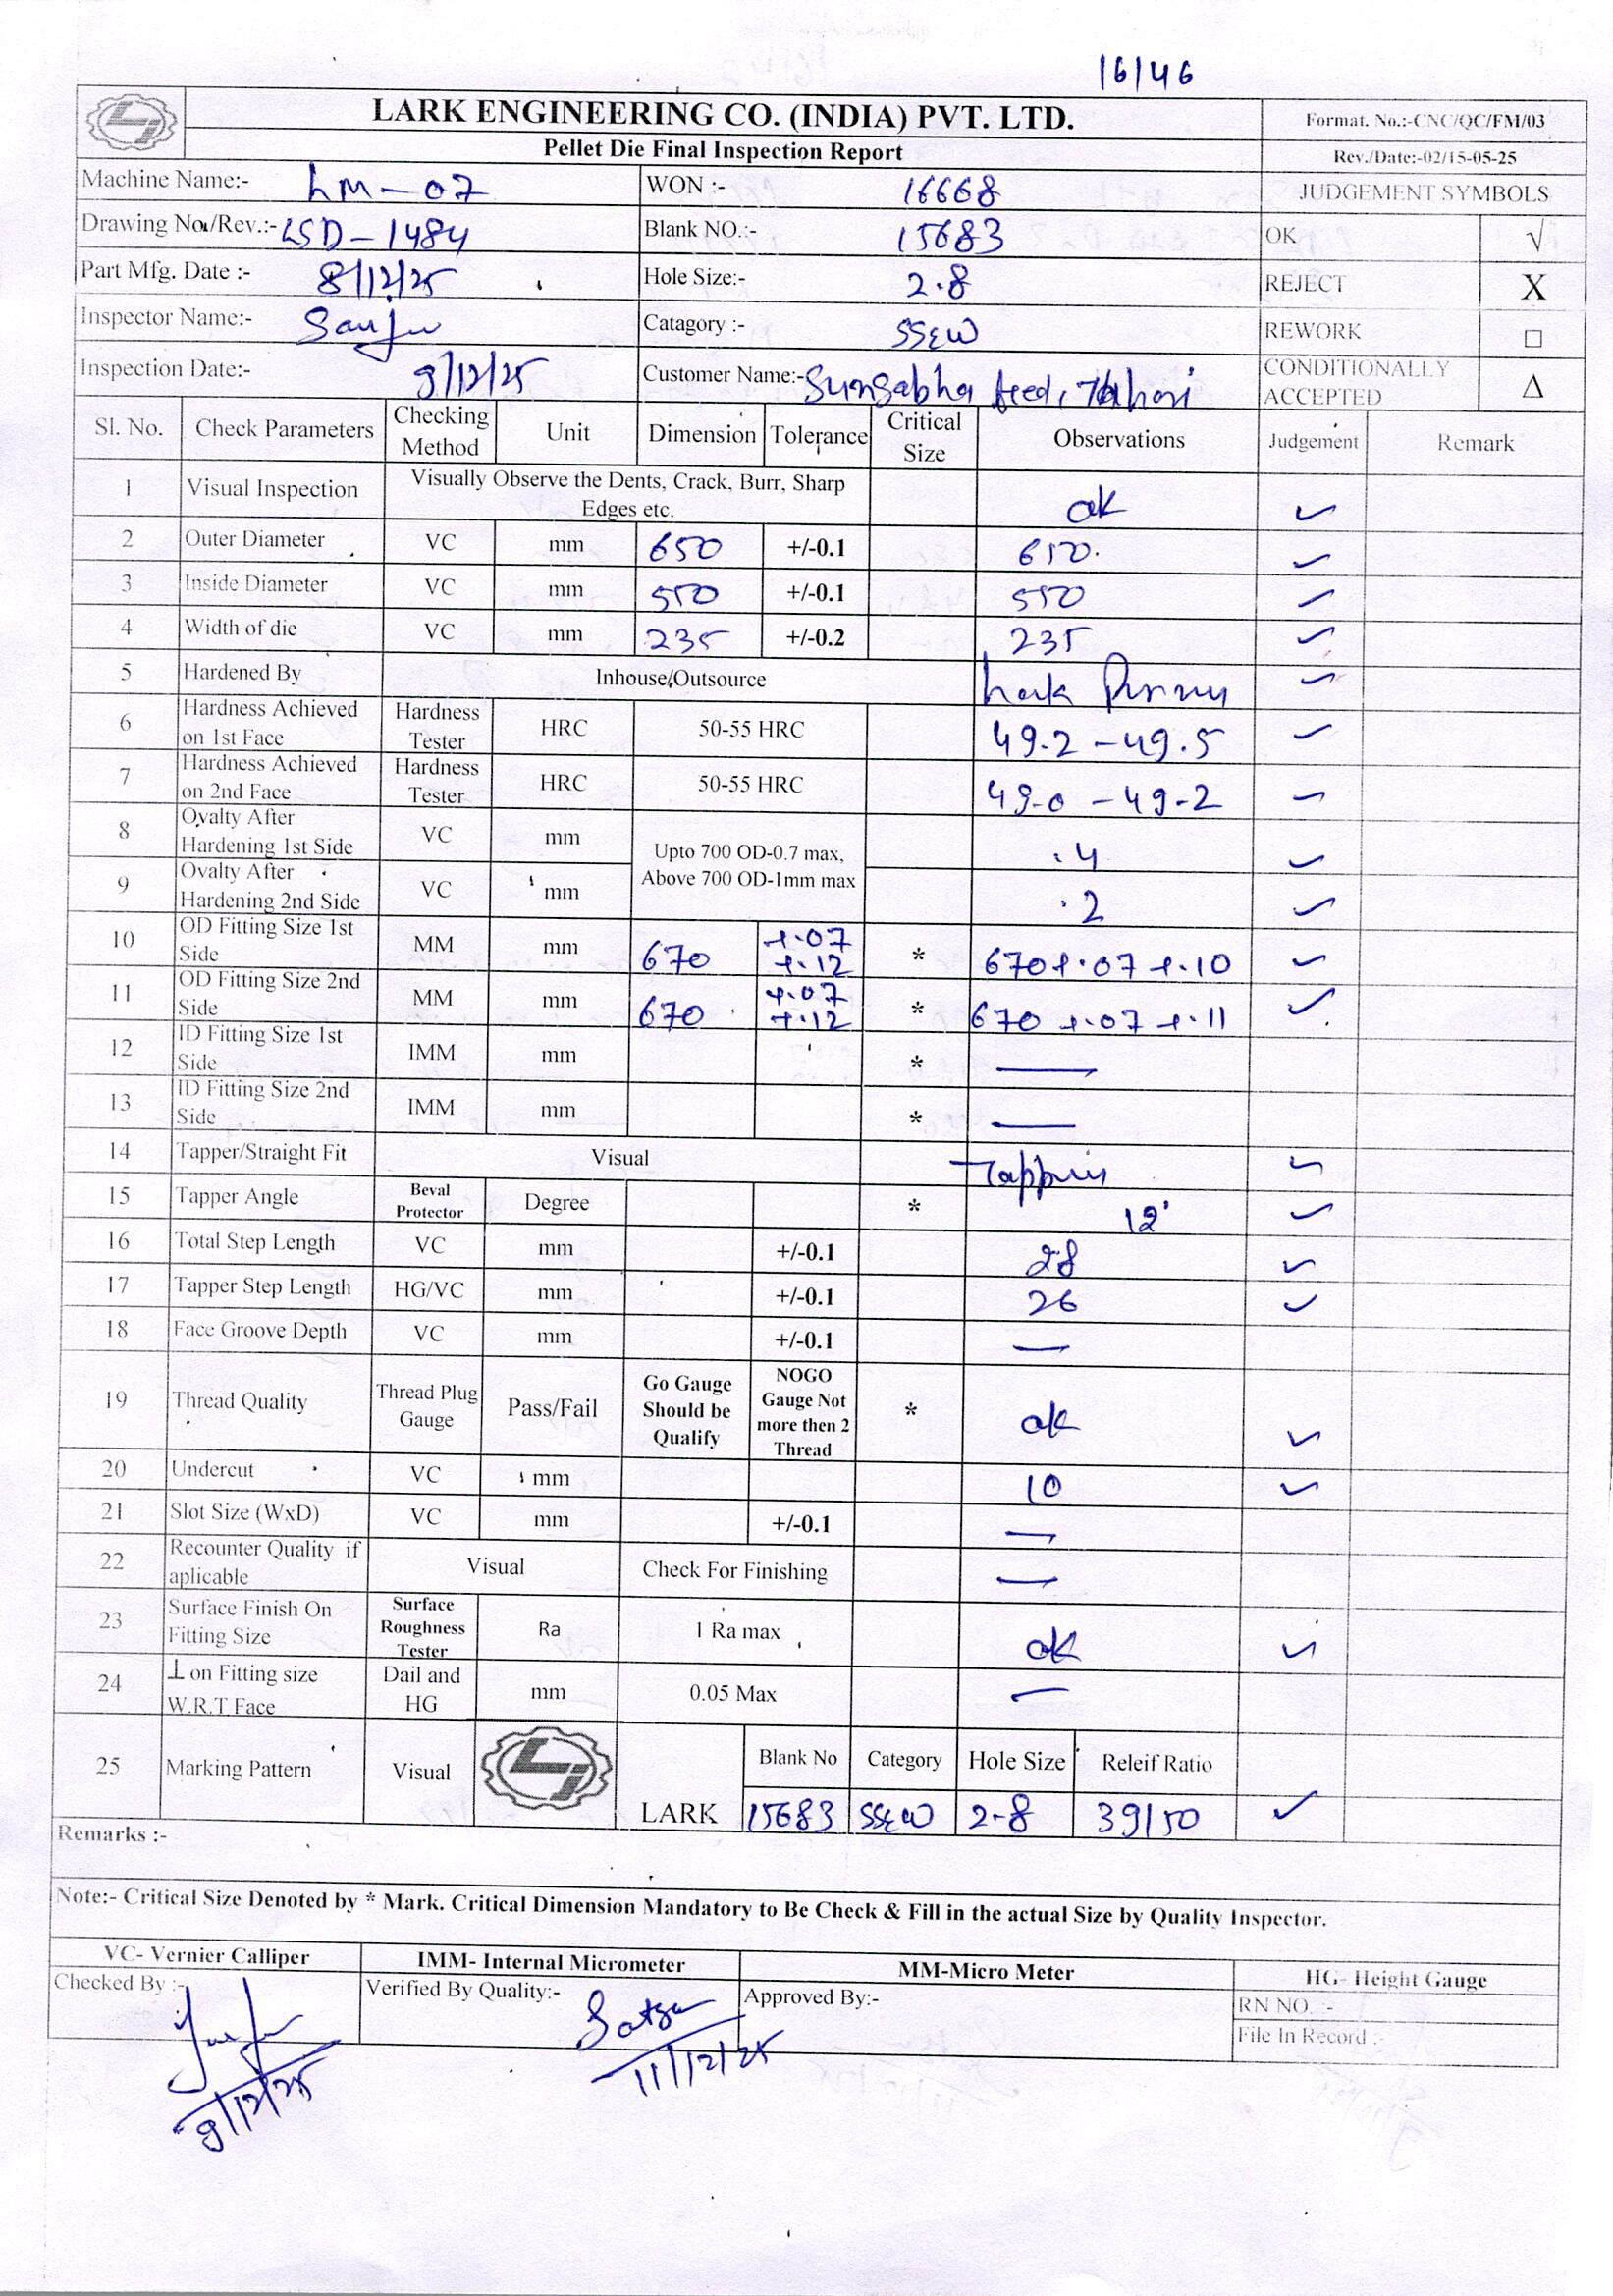 16146
LARK ENGINEERING CO. (INDIA) PVT. LTD.
Format. No.:-CNC/QC/FM/03
Pellet Die Final Inspection Report
Rev./Date:-02/15-05-25
Machine Name:- LM-07 WON :- 16668 JUDGEMENT SYMBOLS
Drawing No./Rev.:- LSD-1484 Blank NO.:- 15683 OK √
Part Mfg. Date :- 8/12/25 Hole Size:- 2.8 REJECT X
Inspector Name:- Sanju Catagory :- SS&W REWORK □
Inspection Date:- 9/12/25 Customer Name:- Sungabha feed, CONDITIONALLY ACCEPTED Δ
Sl. No. Check Parameters Checking Method Unit Dimension Tolerance Critical Size Observations Judgement Remark
1 Visual Inspection Visually Observe the Dents, Crack, Burr, Sharp Edges etc. ok ✓
2 Outer Diameter VC mm 650 +/-0.1 650. ✓
3 Inside Diameter VC mm 550 +/-0.1 550 ✓
4 Width of die VC mm 235 +/-0.2 235 ✓
5 Hardened By Inhouse/Outsource Lark ✓
6 Hardness Achieved on 1st Face Hardness Tester HRC 50-55 HRC 49.2 - 49.5 ✓
7 Hardness Achieved on 2nd Face Hardness Tester HRC 50-55 HRC 49.0 - 49.2 ✓
8 Ovalty After Hardening 1st Side VC mm Upto 700 OD-0.7 max, Above 700 OD-1mm max .4 ✓
9 Ovalty After Hardening 2nd Side VC mm .2 ✓
10 OD Fitting Size 1st Side MM mm 670 +.07 +.12 * 670 +.07 +.10 ✓
11 OD Fitting Size 2nd Side MM mm 670 +.07 +.12 * 670 +.07 +.11 ✓
12 ID Fitting Size 1st Side IMM mm * —
13 ID Fitting Size 2nd Side IMM mm * —
14 Tapper/Straight Fit Visual ✓
15 Tapper Angle Beval Protector Degree * 12° ✓
16 Total Step Length VC mm +/-0.1 28 ✓
17 Tapper Step Length HG/VC mm +/-0.1 26 ✓
18 Face Groove Depth VC mm +/-0.1 —
19 Thread Quality Thread Plug Gauge Pass/Fail Go Gauge Should be Qualify NOGO Gauge Not more then 2 Thread * ok ✓
20 Undercut VC mm 10 ✓
21 Slot Size (WxD) VC mm +/-0.1 —
22 Recounter Quality if aplicable Visual Check For Finishing —
23 Surface Finish On Fitting Size Surface Roughness Tester Ra 1 Ra max ok ✓
24 ⊥ on Fitting size W.R.T Face Dail and HG mm 0.05 Max —
25 Marking Pattern Visual LARK Blank No Category Hole Size Releif Ratio
15683 SS&W 2-8 39/50 ✓
Remarks :-
Note:- Critical Size Denoted by * Mark. Critical Dimension Mandatory to Be Check & Fill in the actual Size by Quality Inspector.
VC- Vernier Calliper IMM- Internal Micrometer MM-Micro Meter HG- Height Gauge
Checked By :- Verified By Quality:- Approved By:- RN NO. :-
File In Record :-
9/12/25 11/12/25